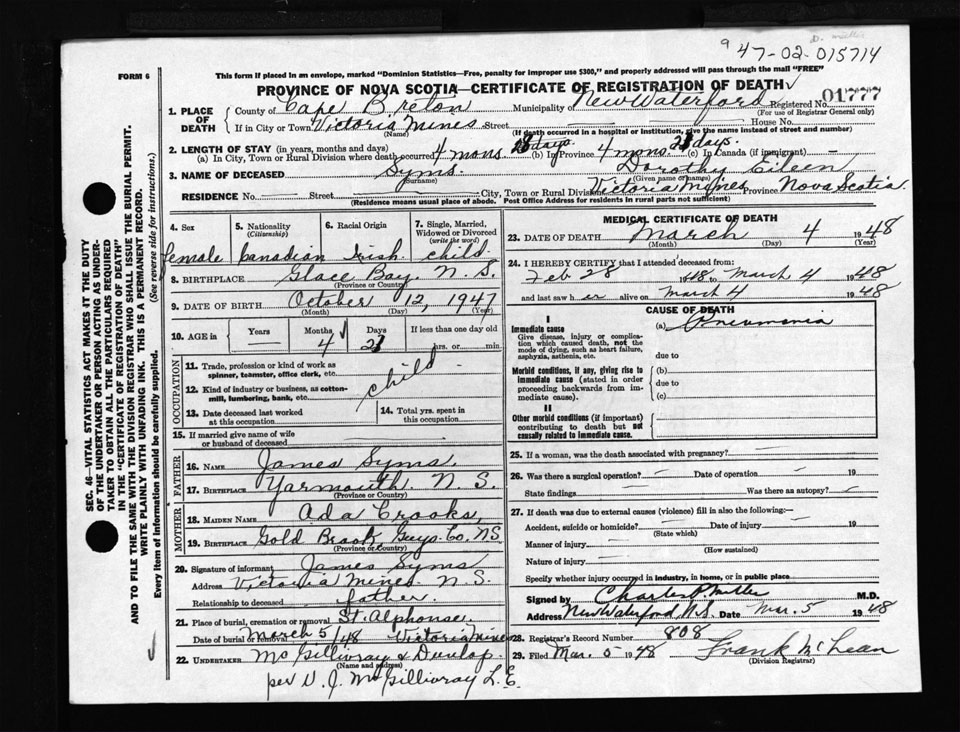 D. Miller
9 47-02-015714
FORM 6
This form if placed in an envelope, marked "Dominion Statistics—Free, penalty for improper use $300," and properly addressed will pass through the mail "FREE"
PROVINCE OF NOVA SCOTIA—CERTIFICATE OF REGISTRATION OF DEATH
1. PLACE OF DEATH County of Cape Breton Municipality of New Waterford Registered No. 01777
(For use of Registrar General only)
If in City or Town Victoria Mines Street House No.
(Name) (If death occurred in a hospital or institution, give the name instead of street and number)
2. LENGTH OF STAY (in years, months and days)
(a) In City, Town or Rural Division where death occurred 4 mons. days. (b) In Province 4 mons. 21 days. (c) In Canada (if immigrant) —
3. NAME OF DECEASED Syms. Dorothy Eileen
(Surname) (Given name or names)
RESIDENCE No. Street City, Town or Rural Division Victoria Mines Province Nova Scotia
(Residence means usual place of abode. Post Office Address for residents in rural parts not sufficient)
4. Sex female
5. Nationality (Citizenship) Canadian
6. Racial Origin Irish
7. Single, Married, Widowed or Divorced (write the word) child
8. BIRTHPLACE Glace Bay. N. S.
(Province or Country)
9. DATE OF BIRTH October 12, 1947
(Month) (Day) (Year)
10. AGE in Years — Months 4 Days 21 If less than one day
hrs. or min.
OCCUPATION
11. Trade, profession or kind of work as spinner, teamster, office clerk, etc.
12. Kind of industry or business, as cotton-mill, lumbering, bank, etc. child
13. Date deceased last worked at this occupation
14. Total yrs. spent in this occupation
15. If married give name of wife or husband of deceased
FATHER
16. NAME James Syms.
17. BIRTHPLACE Yarmouth N. S.
(Province or Country)
MOTHER
18. MAIDEN NAME Ada Crooks,
19. BIRTHPLACE Gold Brook, Guys. Co, NS.
(Province or Country)
20. Signature of informant James Syms
Address Victoria Mines. N. S.
Relationship to deceased father.
21. Place of burial, cremation or removal St. Alphonse.
Date of burial or removal March 5/48 Victoria Mines
22. UNDERTAKER McGillivray & Dunlop.
(Name and address)
per V. J. McGillivray L. E.
MEDICAL CERTIFICATE OF DEATH
23. DATE OF DEATH March 4 1948
(Month) (Day) (Year)
24. I HEREBY CERTIFY that I attended deceased from:
Feb 28 1948 to March 4 1948
and last saw her alive on March 4 1948
CAUSE OF DEATH
I
Immediate cause
Give disease, injury or complication which caused death, not the mode of dying, such as heart failure, asphyxia, asthenia, etc.
(a) Pneumonia
due to
Morbid conditions, if any, giving rise to immediate cause (stated in order proceeding backwards from immediate cause).
(b)
due to
(c)
II
Other morbid conditions (if important) contributing to death but not causally related to immediate cause.
25. If a woman, was the death associated with pregnancy? —
26. Was there a surgical operation? — Date of operation — 19
State findings Was there an autopsy? —
27. If death was due to external causes (violence) fill in also the following:—
Accident, suicide or homicide? Date of injury 19
(State which)
Manner of injury
(How sustained)
Nature of injury
Specify whether injury occurred in industry, in home, or in public place
Signed by Charles P Miller M.D.
Address New Waterford, N.S. Date Mar. 5 1948
28. Registrar's Record Number 808
29. Filed Mar. 5 1948 Frank McLean
(Division Registrar)
SEC. 46—VITAL STATISTICS ACT MAKES IT THE DUTY
OF THE UNDERTAKER OR PERSON ACTING AS UNDERTAKER TO OBTAIN ALL THE PARTICULARS REQUIRED
IN THE "CERTIFICATE OF REGISTRATION OF DEATH"
AND TO FILE THE SAME WITH THE DIVISION REGISTRAR WHO SHALL ISSUE THE BURIAL PERMIT.
WRITE PLAINLY WITH UNFADING INK. THIS IS A PERMANENT RECORD.
Every item of information should be carefully supplied. (See reverse side for instructions.)